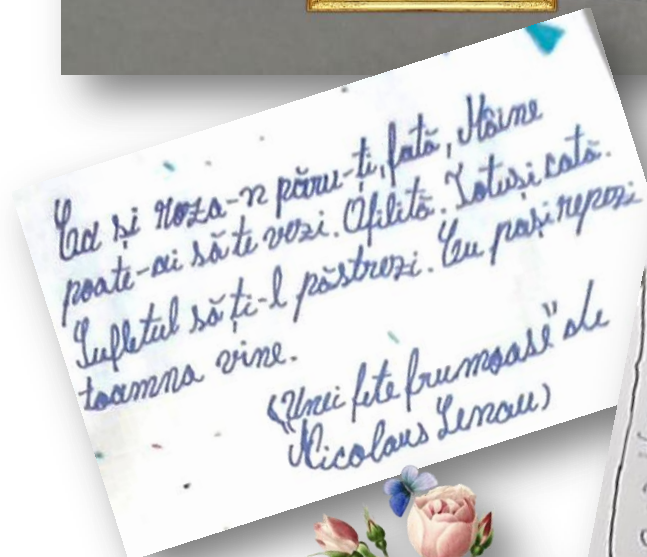 Ca și roza-n păru-ți, fată, Mâine
poate-ai să te vezi. Ofilită. Totuși cată.
Sufletul să ți-l păstrezi. Cu pași repezi
toamna vine.
("Unei fete frumoase" de
Nicolaus Lenau)